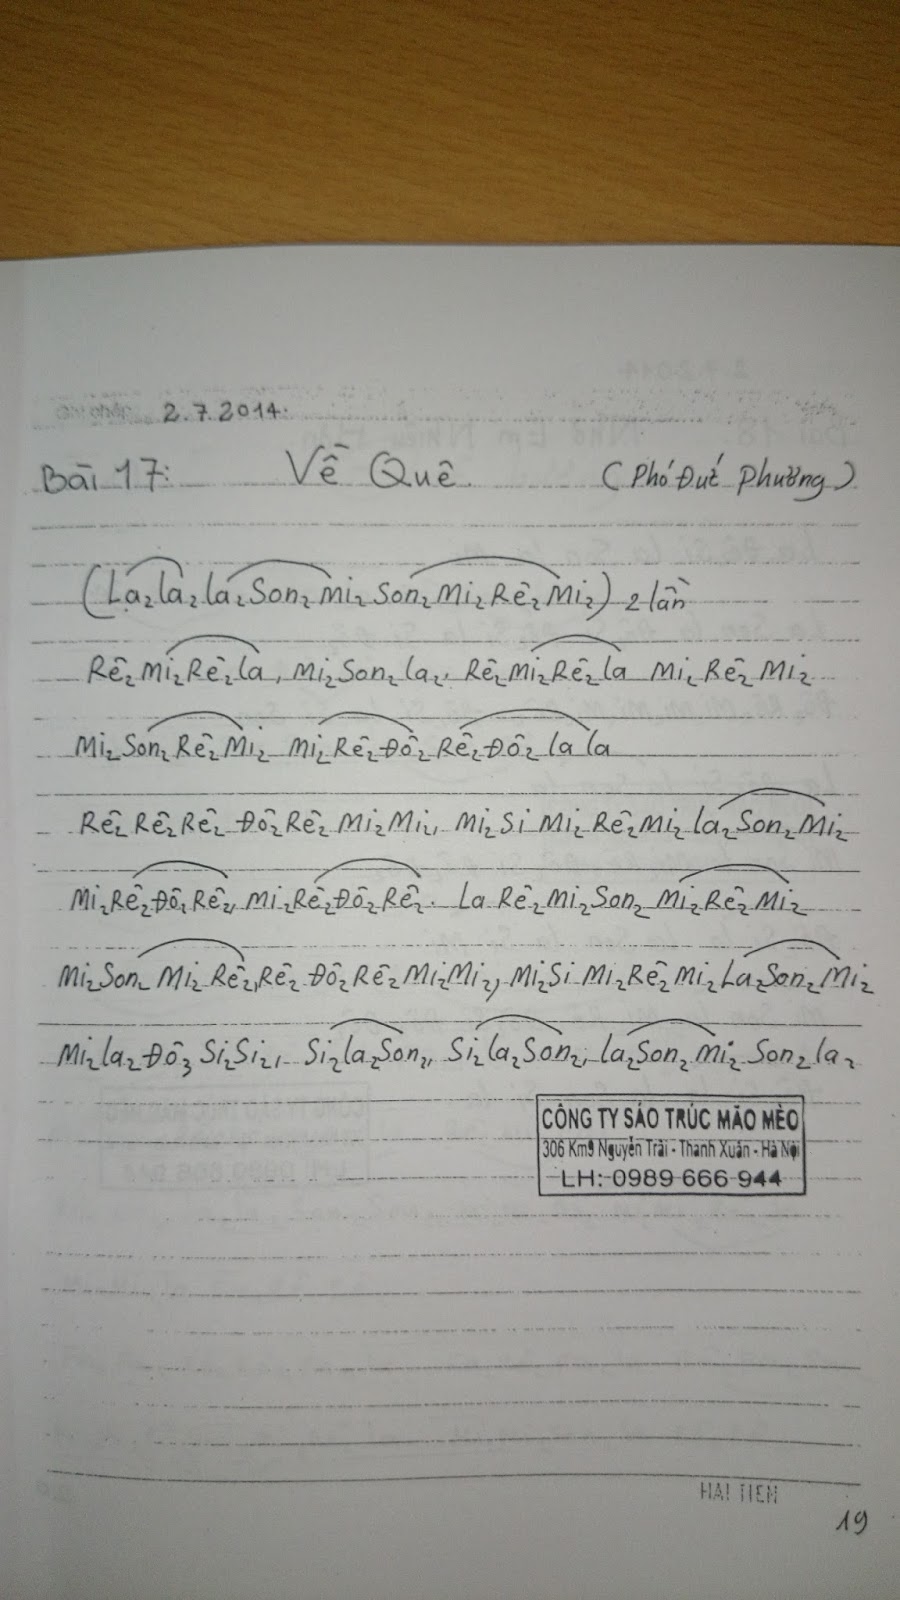 Ghi chép 2.7.2014.
Bài 17: Về Quê. (Phó Đức Phương)
(La₂la₂la₂Son₂Mi₂Son₂Mi₂Rê₂Mi₂) 2 lần
Rê₂Mi₂Rê₂la, Mi₂Son₂la₂, Rê₂Mi₂Rê₂la Mi₂Rê₂Mi₂
Mi₂Son₂Rê₂Mi₂ Mi₂Rê₂Đô₂Rê₂Đô₂lala
Rê₂Rê₂Rê₂ Đô₂Rê₂Mi₂Mi₂, Mi₂Si Mi₂Rê₂Mi₂la₂Son₂Mi₂
Mi₂Rê₂Đô₂Rê₂, Mi₂Rê₂Đô₂Rê₂. La Rê₂Mi₂Son₂ Mi₂Rê₂Mi₂
Mi₂Son₂ Mi₂Rê₂,Rê₂ Đô₂Rê₂Mi₂Mi₂, Mi₂Si Mi₂Rê₂Mi₂La₂Son₂Mi₂
Mi₂la₂Đô₃Si₂Si₂, Si₂la₂Son₂, Si₂la₂Son₂, la₂Son₂Mi₂Son₂la₂
CÔNG TY SÁO TRÚC MÃO MÈO
306 Km9 Nguyễn Trãi - Thanh Xuân - Hà Nội
LH: 0989 666 944
HAI TIEN
19